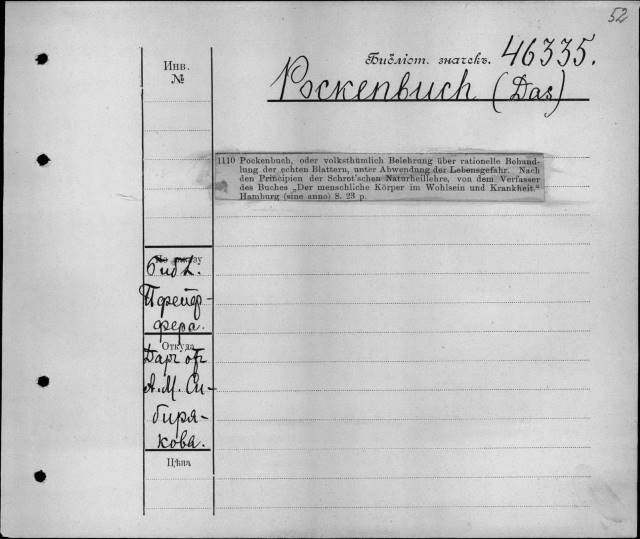 52
Библіот. значекъ. 46335.
Инв.
№
Pockenbuch (Das)
1110 Pockenbuch, oder volksthümlich Belehrung über rationelle Behand-
lung der echten Blattern, unter Abwendung der Lebensgefahr. Nach
den Principien der Schrot'schen Naturheillehre, von dem Verfasser
des Buches „Der menschliche Körper im Wohlsein und Krankheit.“
Hamburg (sine anno) 8. 23 p.
Библ.
Пфейф-
фера.
Откуда
Даръ отъ
А. М. Си-
биря-
кова.
Цѣна